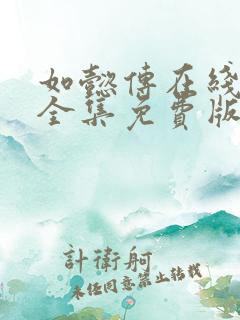 如懿傳在綫
全集免費版
計衛舸
未經同意禁止轉載